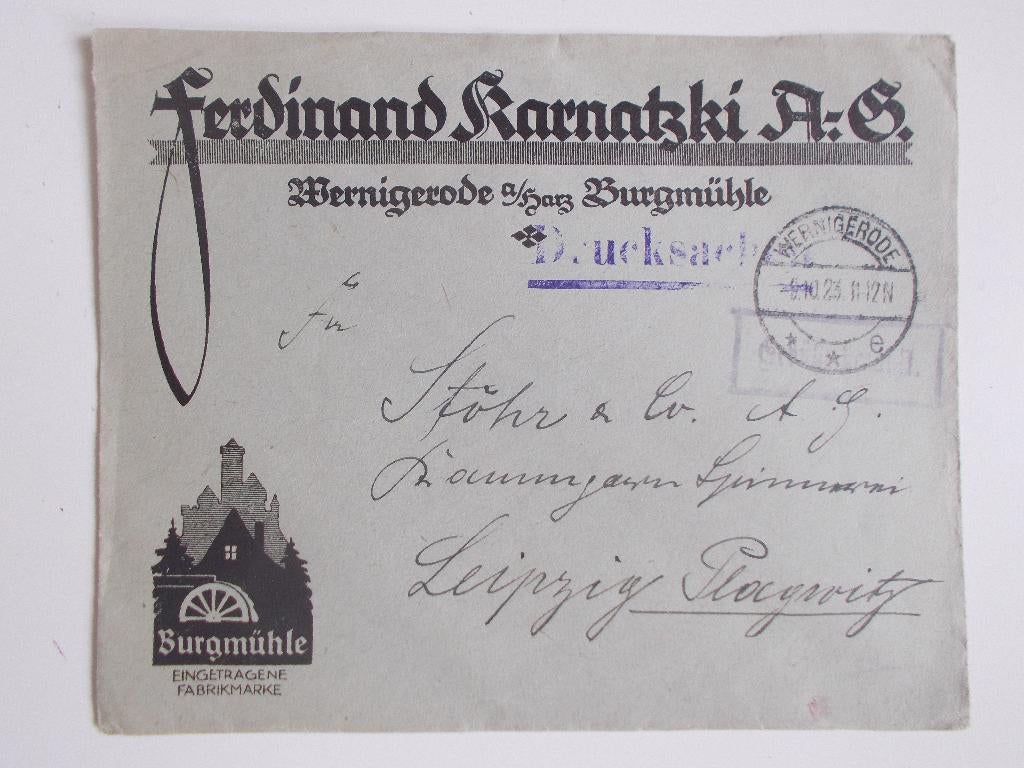 Ferdinand Karnatzki A.=G.
Wernigerode a/Harz Burgmühle
Drucksache
WERNIGERODE
-9.10.23. 11-12 N
* * e
Stöhr & Co. A. G.
Kammgarn Spinnerei
Leipzig Plagwitz
Burgmühle
EINGETRAGENE
FABRIKMARKE